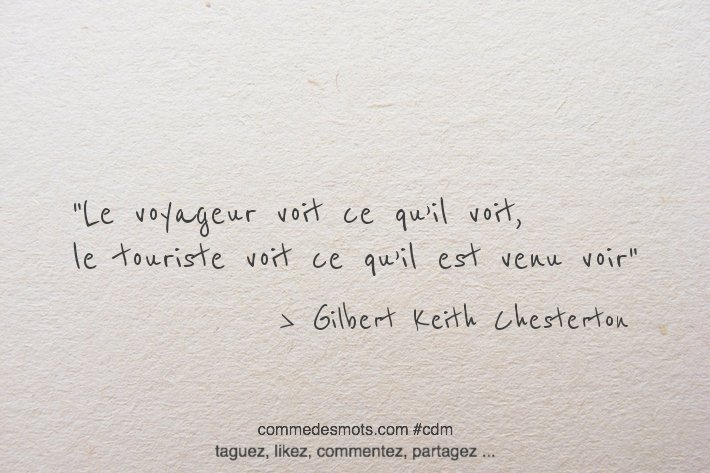 "Le voyageur voit ce qu'il voit,
le touriste voit ce qu'il est venu voir"
> Gilbert Keith Chesterton
commedesmots.com #cdm
taguez, likez, commentez, partagez ...